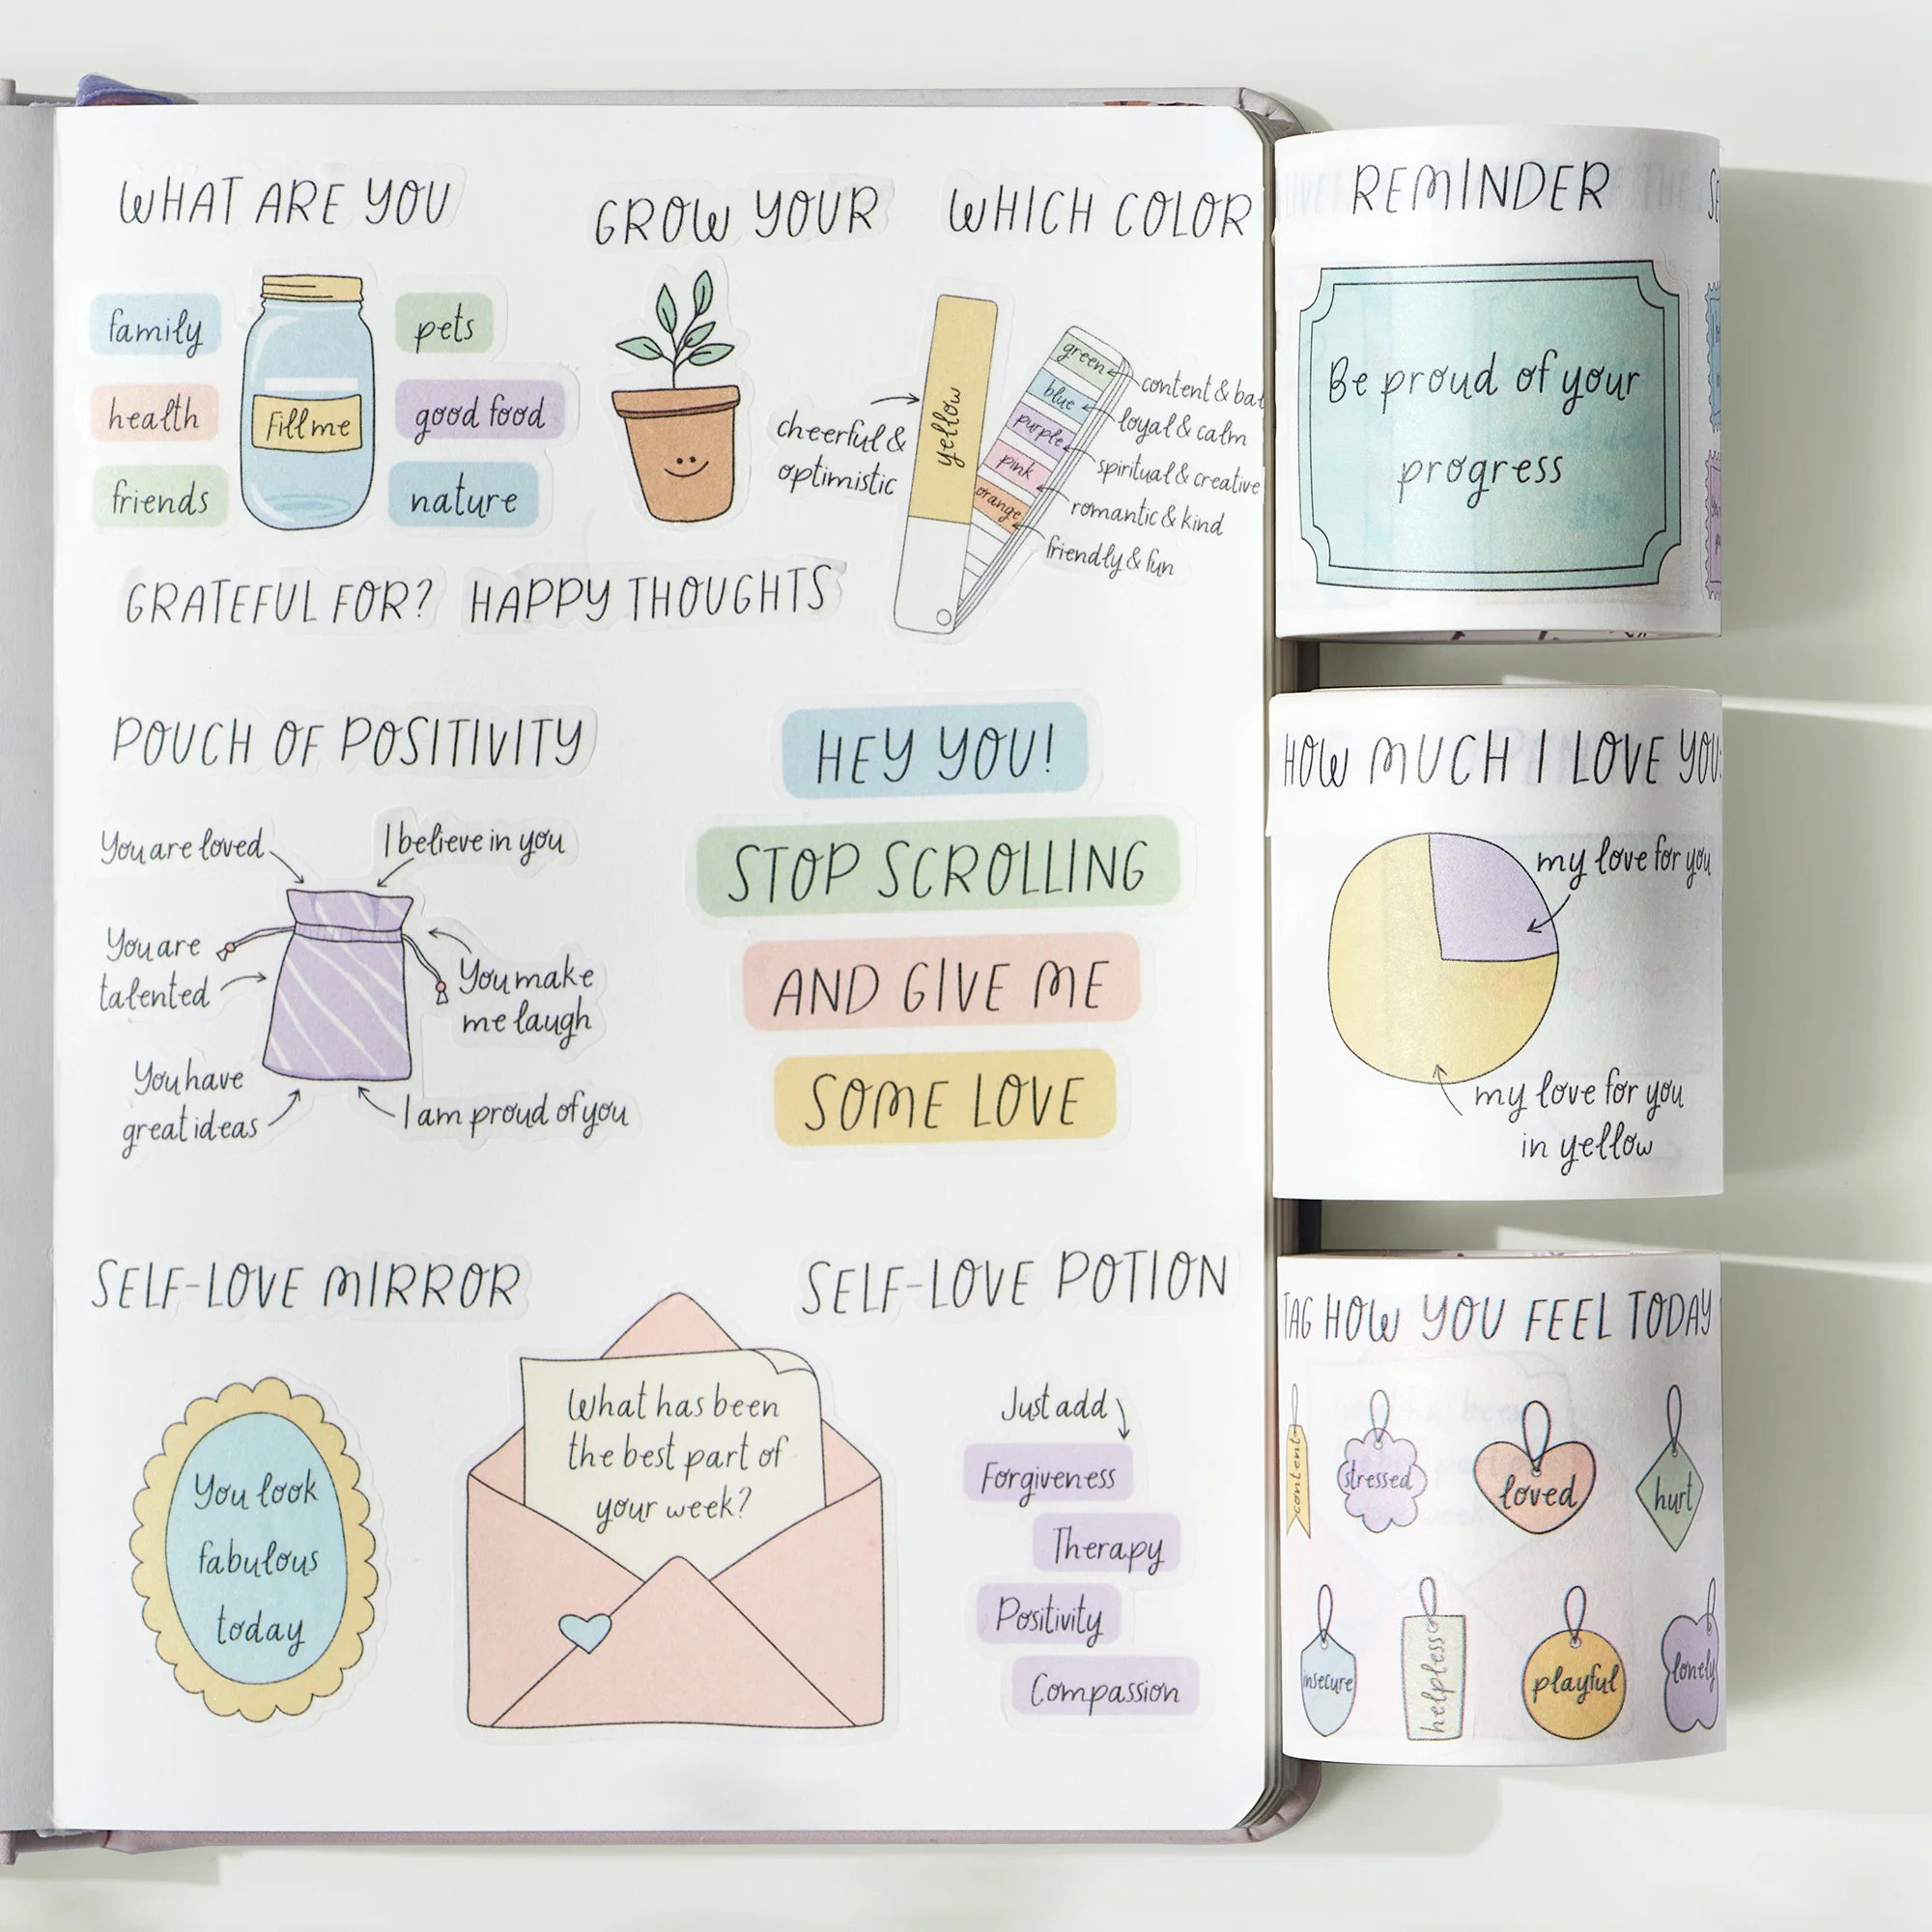 WHAT ARE YOU
family
health
friends
Fill me
pets
good food
nature
GRATEFUL FOR?
GROW YOUR
HAPPY THOUGHTS
WHICH COLOR
cheerful &
optimistic
yellow
green
blue
purple
pink
orange
content &
loyal & calm
spiritual & creative
romantic & kind
friendly & fun
POUCH OF POSITIVITY
You are loved
I believe in you
You are
talented
You make
me laugh
You have
great ideas
I am proud of you
HEY YOU!
STOP SCROLLING
AND GIVE ME
SOME LOVE
SELF-LOVE MIRROR
You look
fabulous
today
What has been
the best part of
your week?
SELF-LOVE POTION
Just add
Forgiveness
Therapy
Positivity
Compassion
REMINDER
Be proud of your
progress
HOW MUCH I LOVE YOU:
my love for you
my love for you
in yellow
TAG HOW YOU FEEL TODAY
content
stressed
loved
hurt
insecure
helpless
playful
lonely